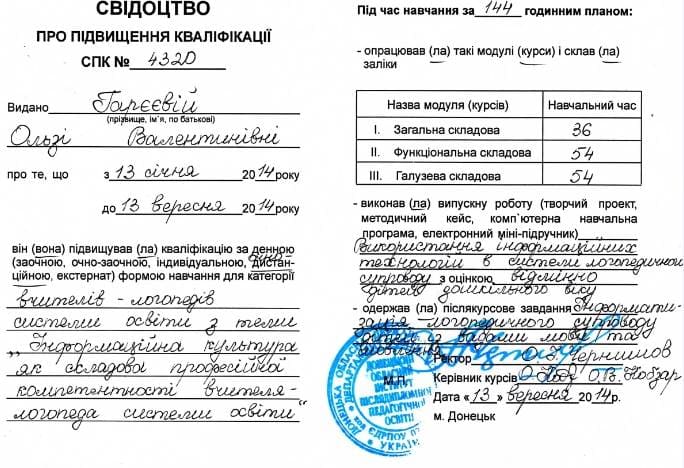 СВІДОЦТВО
ПРО ПІДВИЩЕННЯ КВАЛІФІКАЦІЇ
СПК № 4320
Видано Гарєєвій
(прізвище, ім'я, по батькові)
Ользі Валентинівні
про те, що з 13 січня 2014 року
до 13 вересня 2014 року
він (вона) підвищував (ла) кваліфікацію за денною
(заочною, очно-заочною, індивідуальною, дистан-
ційною, екстернат) формою навчання для категорії
вчителів - логопедів
системи освіти з теми
„Інформаційна культура
як складова професійної
компетентності вчителя-
логопеда системи освіти"
Під час навчання за 144 годинним планом:
- опрацював (ла) такі модулі (курси) і склав (ла)
заліки
Назва модуля (курсів) Навчальний час
I. Загальна складова 36
II. Функціональна складова 54
III. Галузева складова 54
- виконав (ла) випускну роботу (творчий проект,
методичний кейс, комп`ютерна навчальна
програма, електронний міні-підручник)
Використання інформаційних
технологій в системі логопедичного
супроводу з оцінкою відмінно
дітей дошкільного віку
- одержав (ла) післякурсове завдання Інформати-
зація логопедичного супроводу
дітей з вадами мови та
Ректор Чернишов
М.П.
Керівник курсів О.В. Кобзар
Дата « 13 » вересня 2014р.
м. Донецьк
ДОНЕЦЬКИЙ
ОБЛАСНИЙ
ІНСТИТУТ
ПІСЛЯДИПЛОМНОЇ
ПЕДАГОГІЧНОЇ
ОСВІТИ